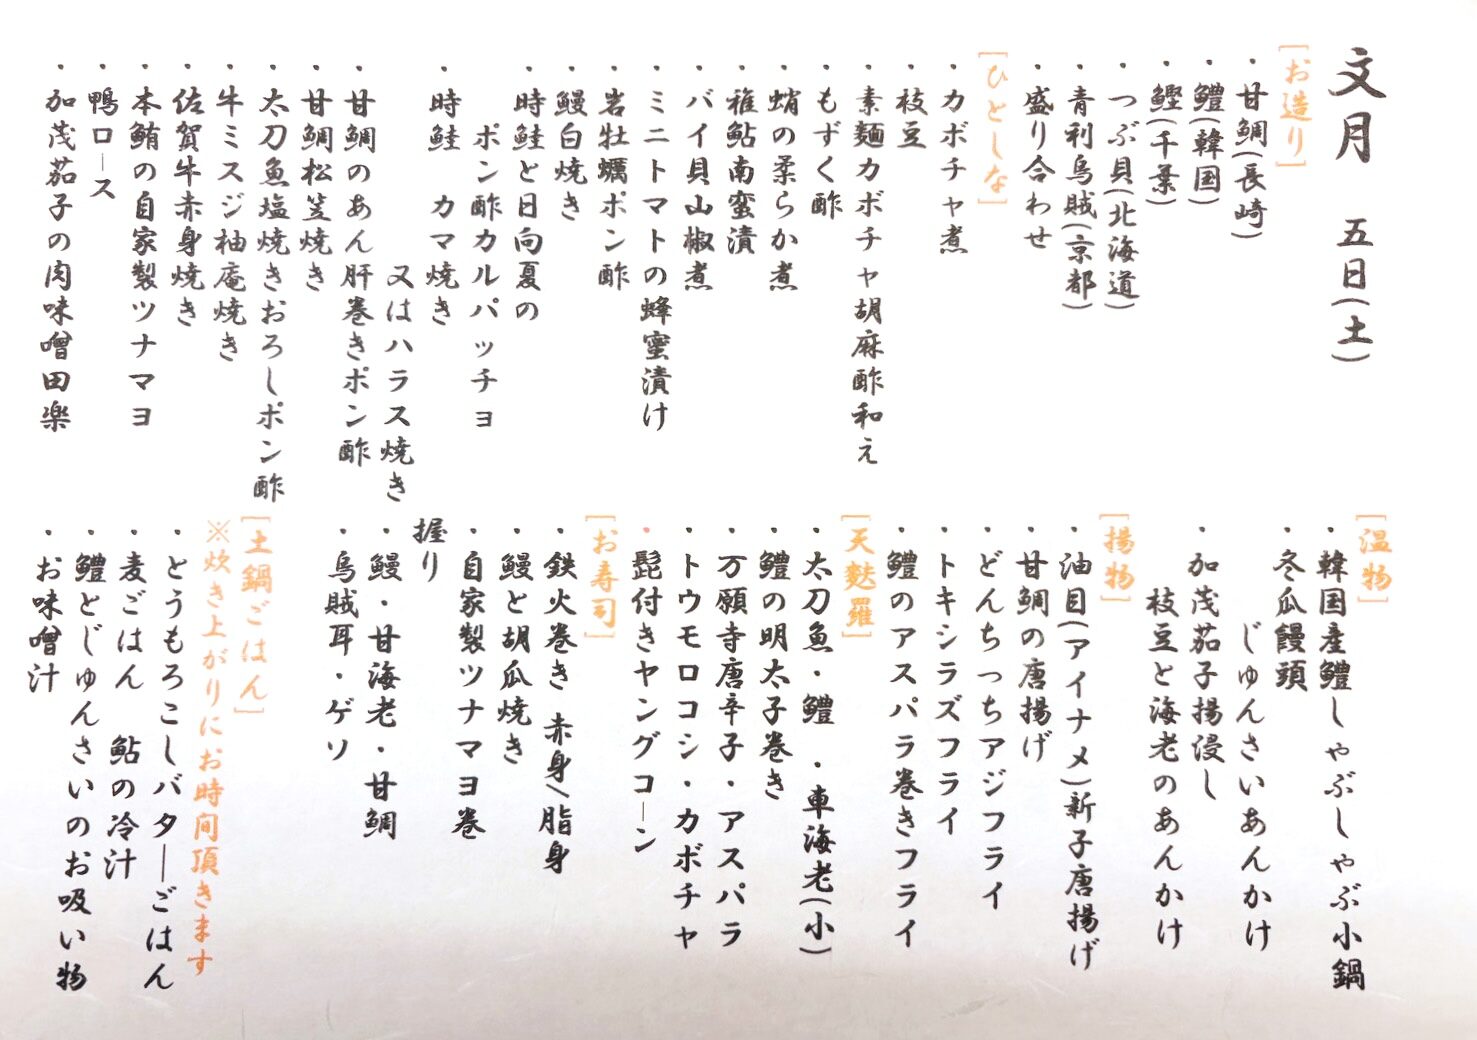 文月 五日(土)
[お造り]
・甘鯛(長崎)
・鱧(韓国)
・鰹(千葉)
・つぶ貝(北海道)
・青利烏賊(京都)
・盛り合わせ
[ひとしな]
・カボチャ煮
・枝豆
・素麺カボチャ胡麻酢和え
・もずく酢
・蛸の柔らか煮
・稚鮎南蛮漬
・バイ貝山椒煮
・ミニトマトの蜂蜜漬け
・岩牡蠣ポン酢
・鰻白焼き
・時鮭と日向夏の
ポン酢カルパッチョ
・時鮭 カマ焼き
又はハラス焼き
・甘鯛のあん肝巻きポン酢
・甘鯛松笠焼き
・太刀魚塩焼きおろしポン酢
・牛ミスジ柚庵焼き
・佐賀牛赤身焼き
・本鮪の自家製ツナマヨ
・鴨ロース
・加茂茄子の肉味噌田楽
[温物]
・韓国産鱧しゃぶしゃぶ小鍋
・冬瓜饅頭
じゅんさいあんかけ
・加茂茄子揚浸し
枝豆と海老のあんかけ
[揚物]
・油目(アイナメ)新子唐揚げ
・甘鯛の唐揚げ
・どんちっちアジフライ
・トキシラズフライ
・鱧のアスパラ巻きフライ
[天麩羅]
・太刀魚・鱧 ・車海老(小)
・鱧の明太子巻き
・万願寺唐辛子・アスパラ
・トウモロコシ・カボチャ
・髭付きヤングコーン
[お寿司]
・鉄火巻き 赤身/脂身
・鰻と胡瓜焼き
・自家製ツナマヨ巻
握り
・鰻・甘海老・甘鯛
・烏賊耳・ゲソ
[土鍋ごはん]
※炊き上がりにお時間頂きます
・とうもろこしバターごはん
・麦ごはん 鮎の冷汁
・鱧とじゅんさいのお吸い物
・お味噌汁